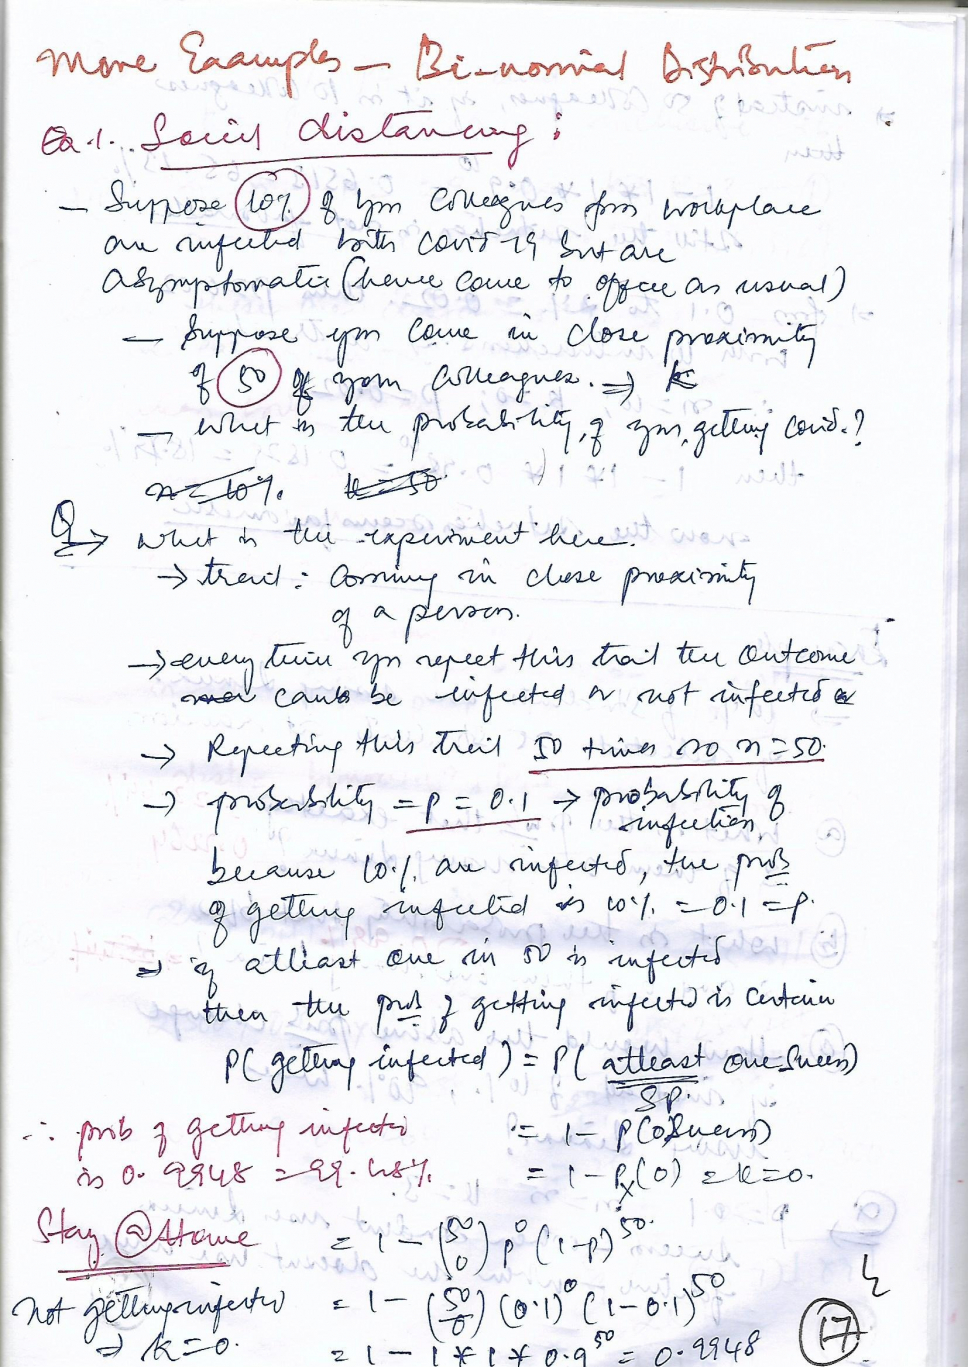 More Examples - Bi-normial Distribution
Ex.1. Social distancing:
- Suppose 10% of your colleagues from workplace
are infected with covid-19 but are
asymptomatic (hence come to office as usual)
- Suppose you come in close proximity
of 50 of your colleagues. ⇒ k
- what is the probability, of you, getting covid.?
n = 10%. k = 50
Q ⇒ what is the experiment here.
→ trail: Coming in close proximity
of a person.
→ every time you repeat this trail the outcome
can be infected or not infected
→ Repeating this trail 50 times so n = 50.
→ probability = p = 0.1 → probability of
infection
because 10% are infected, the prob
of getting infected is 10% = 0.1 = p.
⇒ if atleast one in 50 is infected
then the prob of getting infected is certain
P(getting infected) = P(atleast one success)
SP.
∴ prob of getting infected = 1 - P(0 Success)
is 0.9948 = 99.48% = 1 - Px(0) = k=0.
Stay @ Home = 1 - (50 0) p^0 (1-p)^50.
Not getting infected = 1 - (50/0) (0.1)^0 (1-0.1)^50
⇒ k=0. = 1 - 1 * 1 * 0.9^50 = 0.9948
17